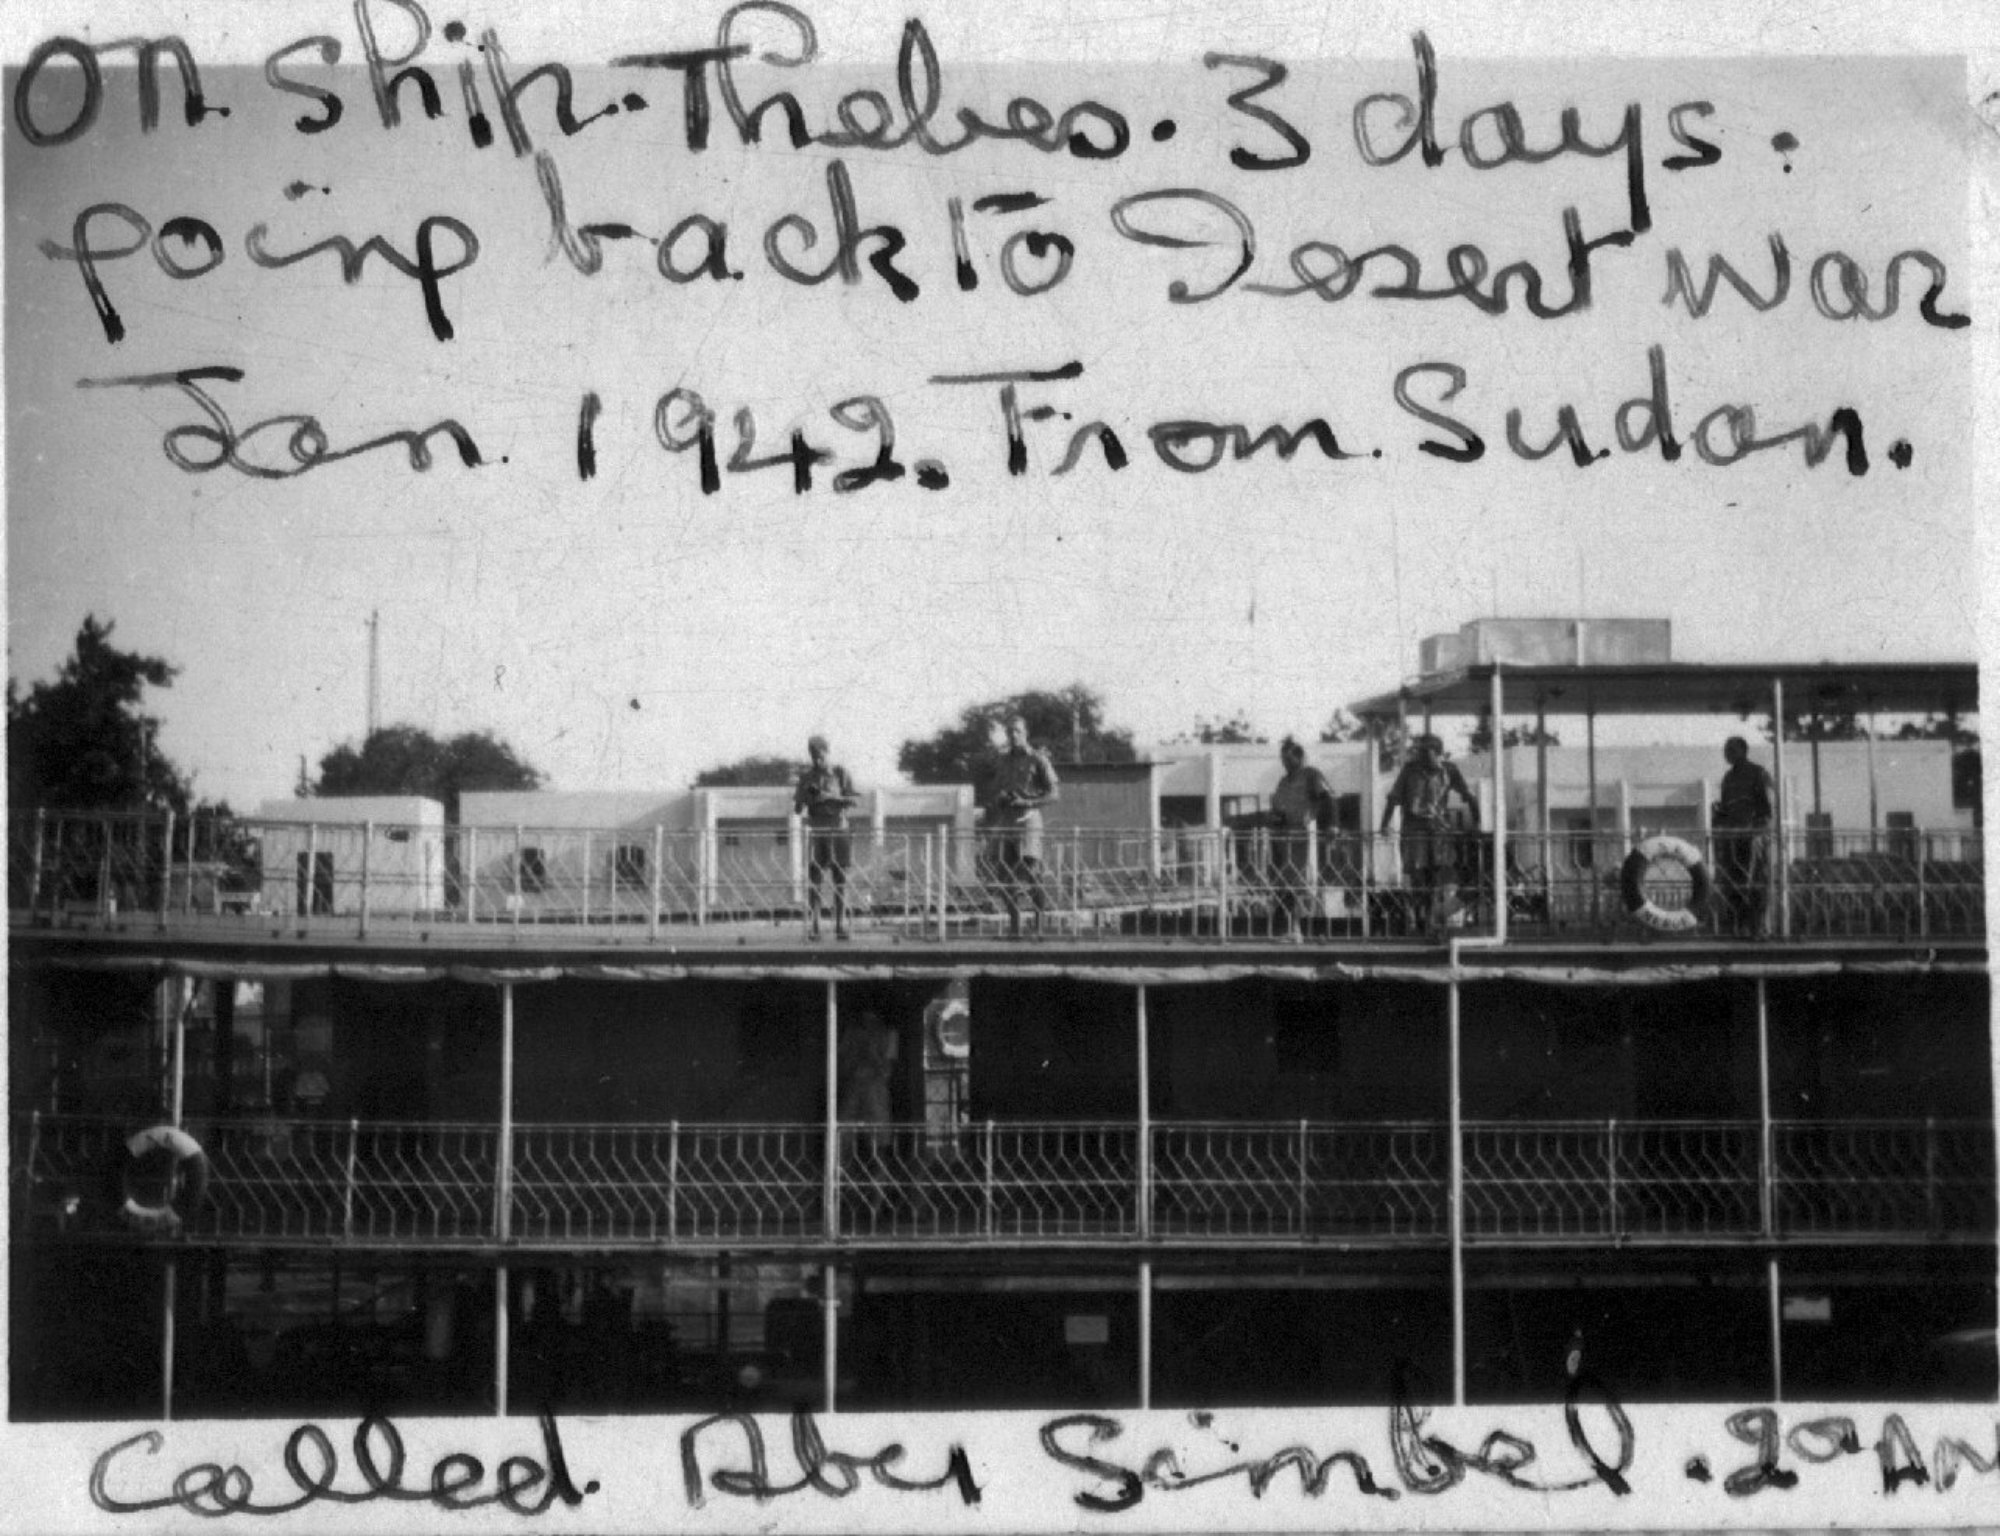 on ship. Thebes. 3 days.
going back to Desert War
Jan. 1942. From Sudan.
Called. Abu Simbel. 2 AM